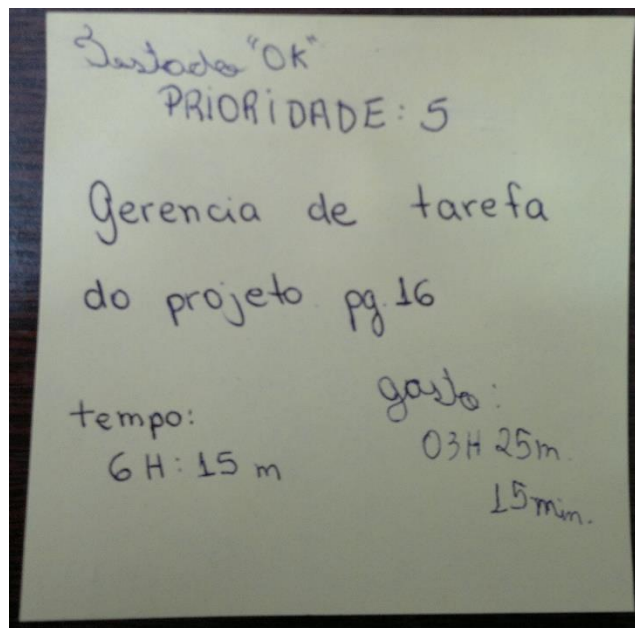 Testado "OK"
PRIORIDADE: 5
Gerencia de tarefa
do projeto pg.16
tempo:
6H:15 m
gasto:
03H 25m.
15min.